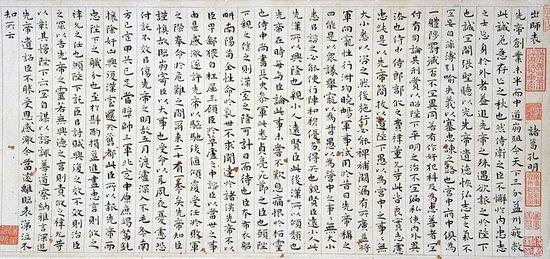 出師表　諸葛孔明
先帝創業未半而中道崩殂今天下三分益州疲敝
此誠危急存亡之秋也然侍衛之臣不懈於內忠志
之士忘身於外者蓋追先帝之殊遇欲報之於陛下
也誠宜開張聖聽以光先帝遺德恢弘志士之氣不
宜妄自菲薄引喻失義以塞忠諫之路也宮中府中俱為
一體陟罰臧否不宜異同若有作奸犯科及為忠善者宜
付有司論其刑賞以昭陛下平明之治不宜偏私使內外異
法也侍中侍郎郭攸之費禕董允等此皆良實志慮
忠純是以先帝簡拔以遺陛下愚以為宮中之事事無
大小悉以咨之然後施行必能裨補闕漏有所廣益將
軍向寵性行淑均曉暢軍事試用於昔日先帝稱之
曰能是以眾議舉寵為督愚以為營中之事事無大小
悉以咨之必能使行陣和穆優劣得所也親賢臣遠小人此
先漢所以興隆也親小人遠賢臣此後漢所以傾頹也
先帝在時每與臣論此事未嘗不歎息痛恨於桓靈
也侍中尚書長史參軍此悉貞亮死節之臣也願陛
下親之信之則漢室之隆可計日而待也臣本布衣躬
耕南陽苟全性命於亂世不求聞達於諸侯先帝不以
臣卑鄙猥自枉屈三顧臣於草廬之中諮臣以當世之事
由是感激遂許先帝以驅馳後值傾覆受任於敗軍
之際奉命於危難之間爾來二十有一年矣先帝知臣
謹慎故臨崩寄臣以大事也受命以來夙夜憂懼恐
付託不效以傷先帝之明故五月渡瀘深入不毛今南
方已定甲兵已足當獎帥三軍北定中原庶竭駑鈍
攘除奸凶興復漢室還於舊都此臣所以報先帝而
忠陛下之職分也至於斟酌損益進盡忠言則攸之禕允
之任也願陛下託臣以討賊興復之效不效則治臣
之罪以告先帝之靈若無興德之言則責攸之禕允等
咎以彰其慢陛下亦宜自謀以諮諏善道察納雅言深追
先帝遺詔臣不勝受恩感激今當遠離臨表涕泣不
知所云